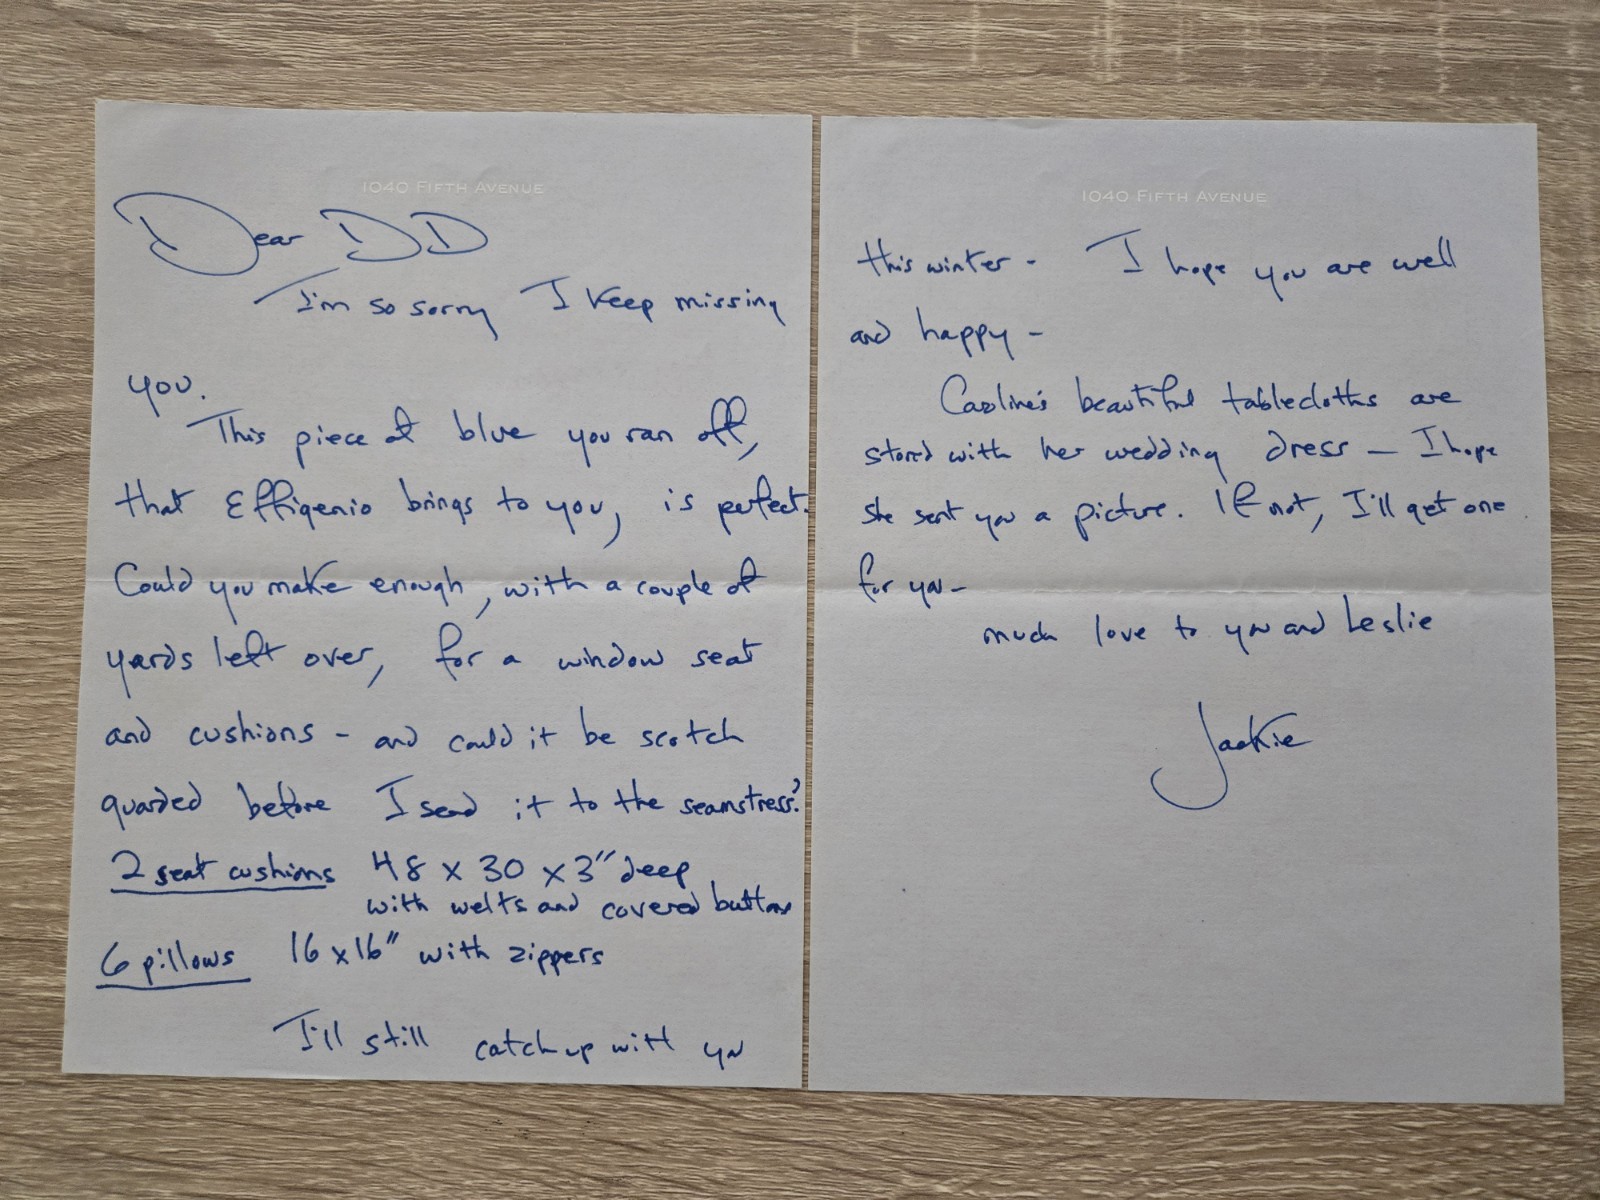 1040 FIFTH AVENUE
Dear DD
I'm so sorry I keep missing
you.
This piece of blue you ran off,
that Effigenio brings to you, is perfect.
Could you make enough, with a couple of
yards left over, for a window seat
and cushions - and could it be scotch
guarded before I send it to the seamstress?
2 seat cushions 48 x 30 x 3" deep
with welts and covered buttons
6 pillows 16 x 16" with zippers
I'll still catch up with you
1040 FIFTH AVENUE
this winter - I hope you are well
and happy -
Caroline's beautiful tablecloths are
stored with her wedding dress — I hope
she sent you a picture. If not, I'll get one
for you -
much love to you and Leslie
Jackie